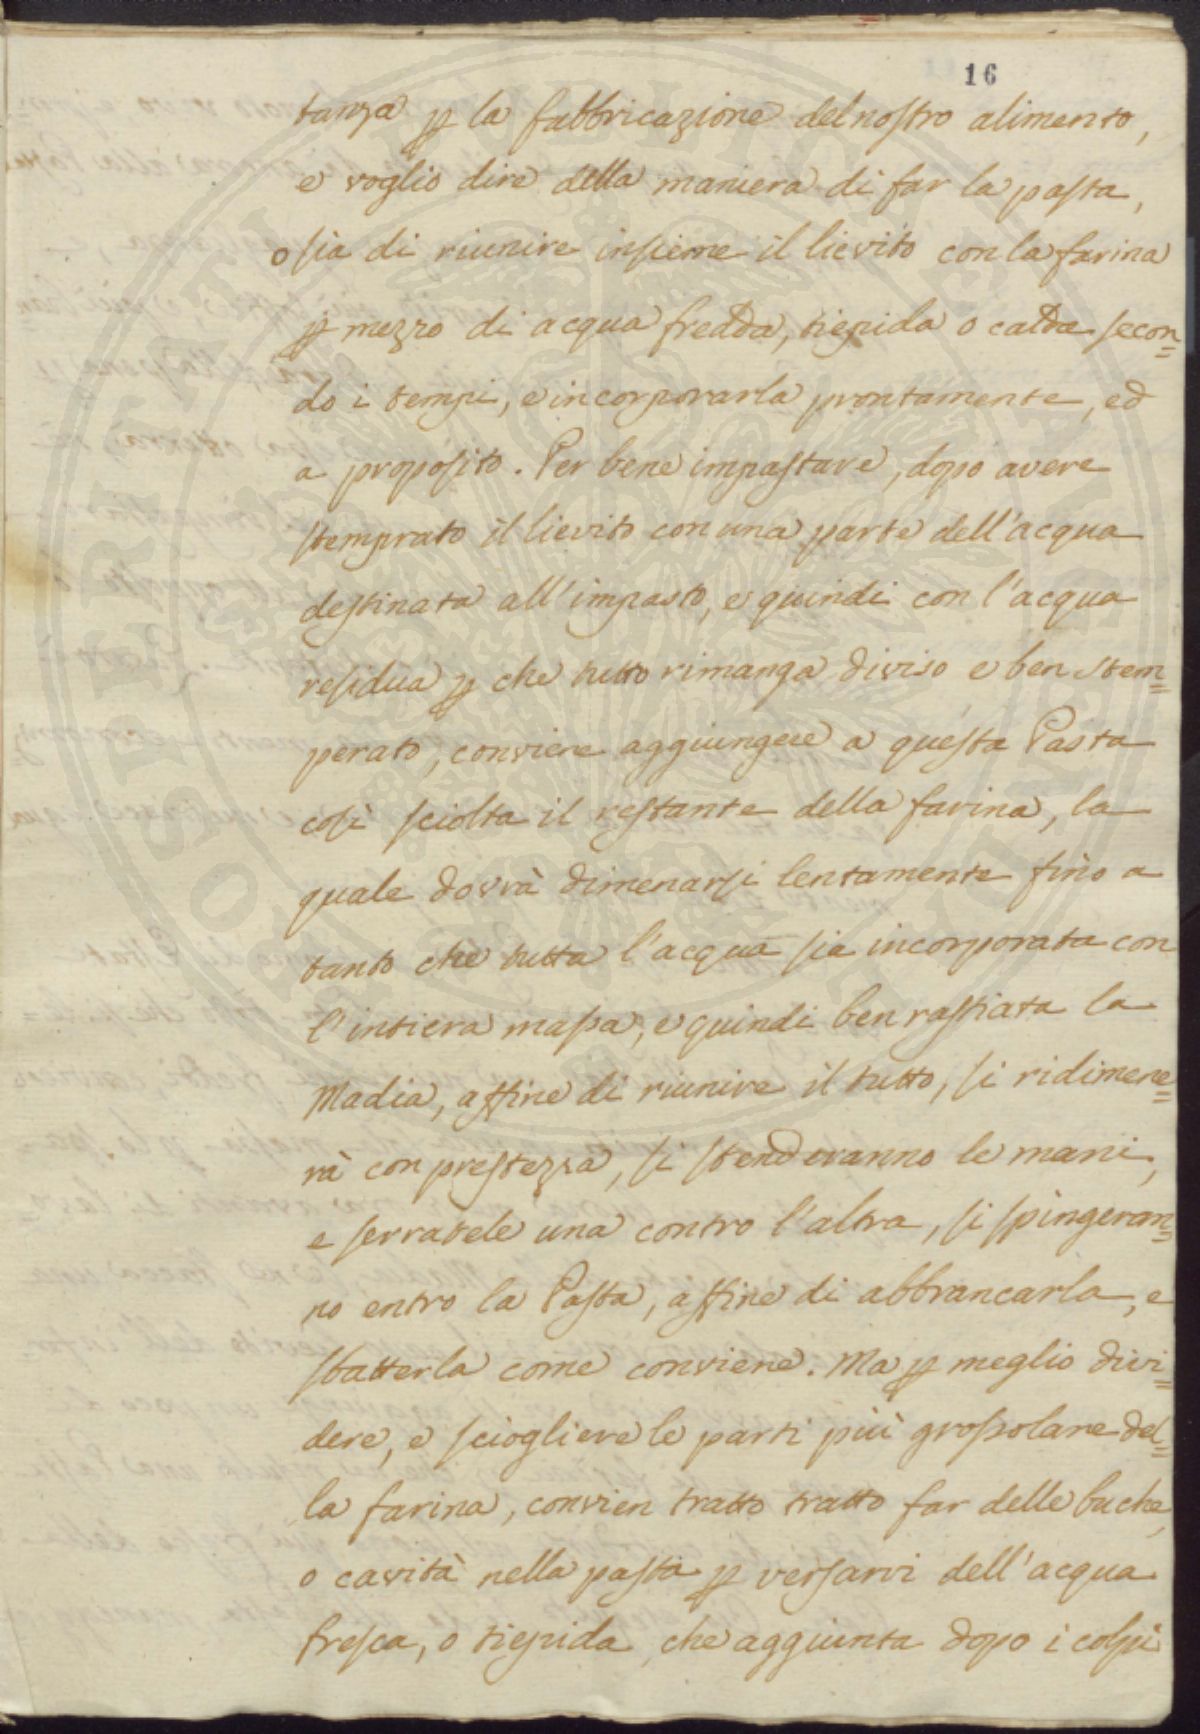 16
tanza ꝑ la fabbricazione del noſtro alimento,
e voglio dire della maniera di far la paſta,
oſia di riunire inſieme il lievito con la farina
ꝑ mezzo di acqua fredda, tiepida o calda ſecon=
do i tempi, e incorporarla prontamente, ed
a propoſito. Per bene impaſtare, dopo avere
ſtemprato il lievito con una parte dell'acqua
deſtinata all'impasto, e quindi con l'acqua
reſidua ꝑ che tutto rimanga diviso, e ben stem=
perato, conviene aggiungere a queſta Pasta
coſì ſciolta il reſtante della farina, la
quale dovrà dimenarſi lentamente fino a
tanto che tutta l'acqua ſia incorporata con
l'intiera maſsa, e quindi ben raſtiata la
Madia, affine di riunire il tutto, ſi ridimene=
rà con preſtezza, ſi ſtenderanno le mani,
e ſerratele una contro l'altra, ſi ſpingeran=
no entro la Paſta, affine di abbrancarla, e
ſbatterla come conviene. Ma ꝑ meglio divi=
dere, e ſciogliere le parti più groſsolane del=
la farina, convien tratto tratto far delle buche,
o cavità nella paſta ꝑ verſarvi dell'acqua
freſca, o tiepida, che aggiunta dopo i colpi
PROSPERITATI PUBLICAE AUGENDAE